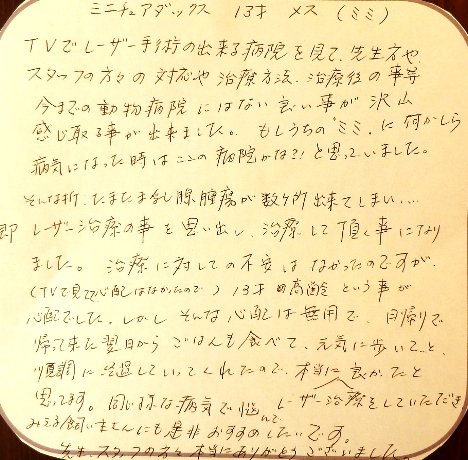 ミニチュアダックス 13才 メス (ミミ)
TVでレーザー手術の出来る病院を見て、先生方や
スタッフの方々の対応や治療方法、治療後の事等
今までの動物病院にはない良い事が沢山
感じ取る事が出来ました。もしうちの"ミミ"に何かしら
病気になった時はここの病院かな?!と思っていました。
そんな折、たまたま乳腺腫瘍が数ヶ所出来てしまい...
即 レーザー治療の事を思い出し、治療して頂く事になり
ました。治療に対しての不安はなかったのですが、
(TVで見てて心配はなかったので) 13才の高齢という事が
心配でした。しかしそんな心配は無用で、日帰りで
帰って来た翌日からごはんも食べて、元気に歩いてと、
順調に経過していってくれたので、本当に良かったと
思ってます。同じ様な病気で悩んで レーザー治療をしていただき
みえる飼い主さんにも是非おすすめしたいです。
先生、スタッフの方々 本当にありがとうございました。